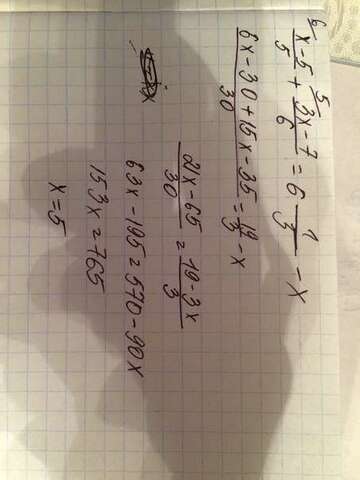 6 5
x-5/5 + 3x-7/6 = 6 1/3 - x
6x-30+15x-35/30 = 19/3 - x
21x-65/30 = 19-3x/3
63x-195=570-90x
153x=765
x=5